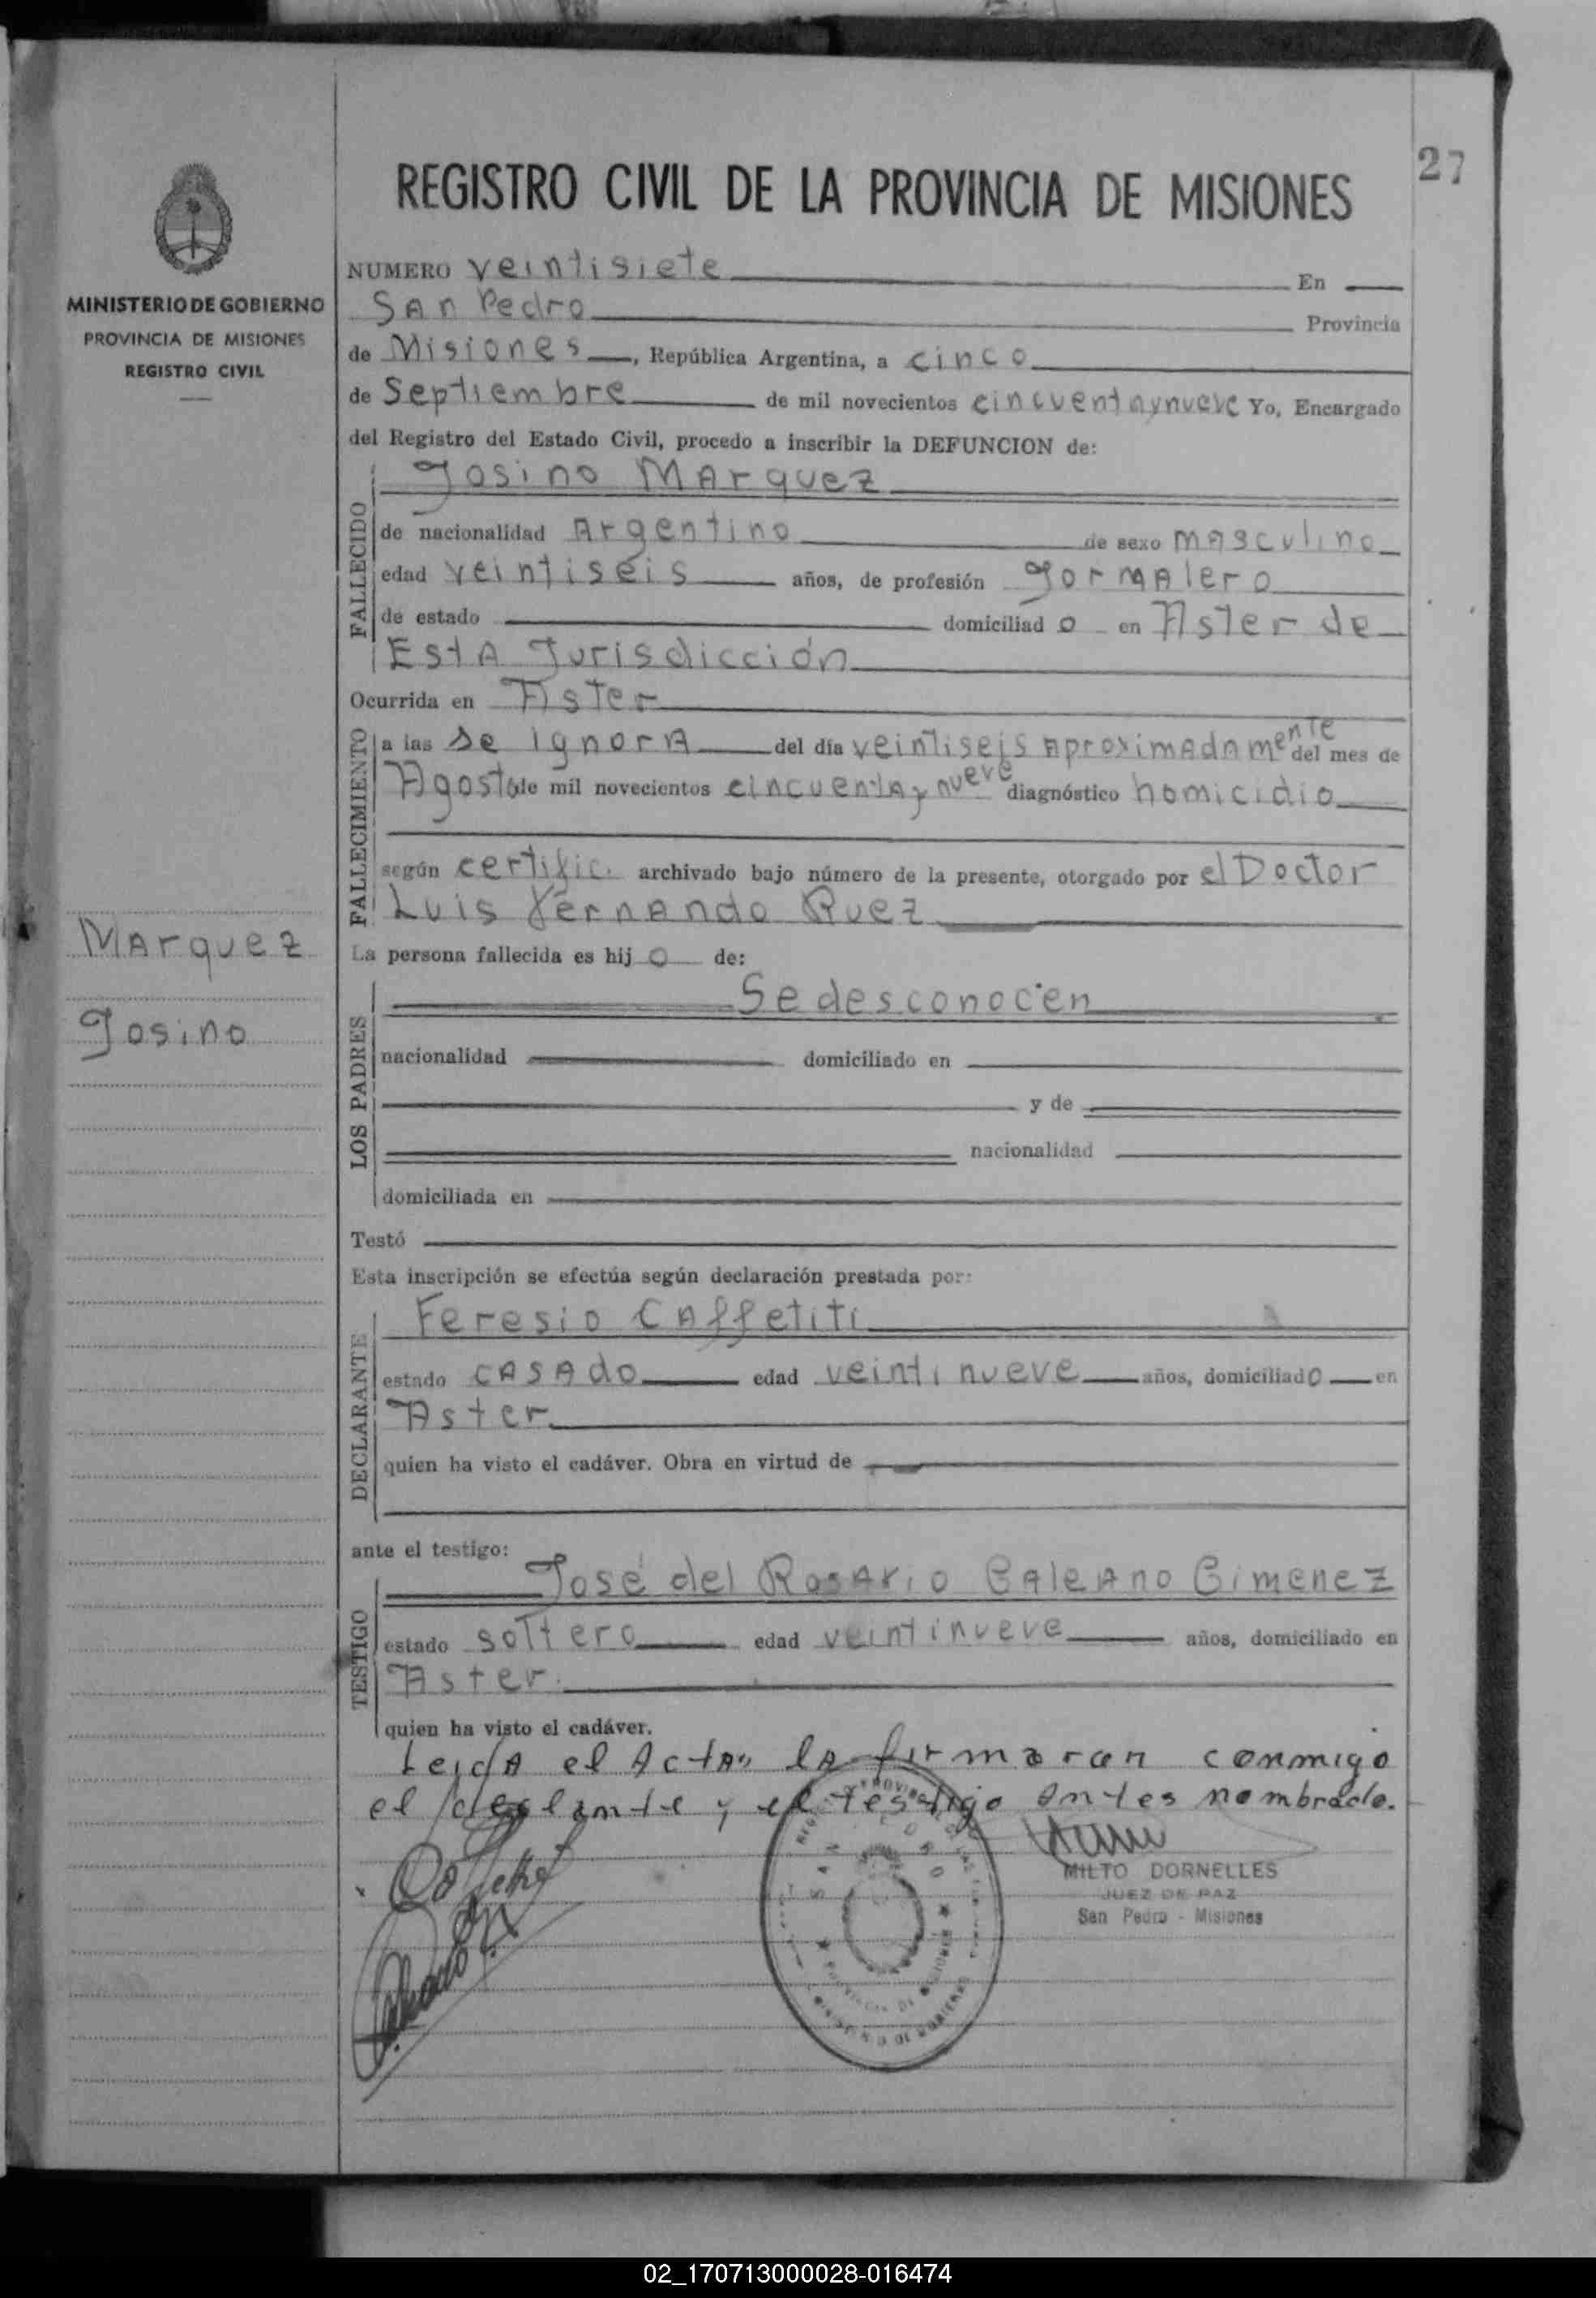 27
REGISTRO CIVIL DE LA PROVINCIA DE MISIONES
MINISTERIO DE GOBIERNO
PROVINCIA DE MISIONES
REGISTRO CIVIL
Marquez
Josino
NUMERO veintisiete En
San Pedro Provincia
de Misiones, República Argentina, a cinco
de Septiembre de mil novecientos cincuentaynueve Yo, Encargado
del Registro del Estado Civil, procedo a inscribir la DEFUNCION de:
FALLECIDO
Josino Marquez
de nacionalidad Argentino de sexo masculino
edad veintiseis años, de profesión Jormalero
de estado domiciliado en Aster de
Esta Jurisdicción
Ocurrida en Aster
FALLECIMIENTO
a las se ignora del día veintiseis aproximadamente del mes de
Agosto de mil novecientos cincuenta y nueve diagnóstico homicidio
según certific. archivado bajo número de la presente, otorgado por el Doctor
Luis Fernando Ruez
La persona fallecida es hijo de:
LOS PADRES
Se desconocen
nacionalidad domiciliado en
y de
nacionalidad
domiciliada en
Testó
Esta inscripción se efectúa según declaración prestada por:
DECLARANTE
Feresio Caffetiti
estado casado edad veintinueve años, domiciliado en
Aster
quien ha visto el cadáver. Obra en virtud de
ante el testigo:
TESTIGO
José del Rosario Galeano Gimenez
estado soltero edad veintinueve años, domiciliado en
Aster.
quien ha visto el cadáver.
Leida el Acta, la firmaran conmigo
el y el testigo antes nombrado.
MILTO DORNELLES
JUEZ DE PAZ
San Pedro - Misiones
SAN PEDRO
PROVINCIA DE MISIONES
MINISTERIO DE GOBIERNO
02_170713000028-016474